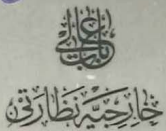 باب عالی
خارجیه نظارتی